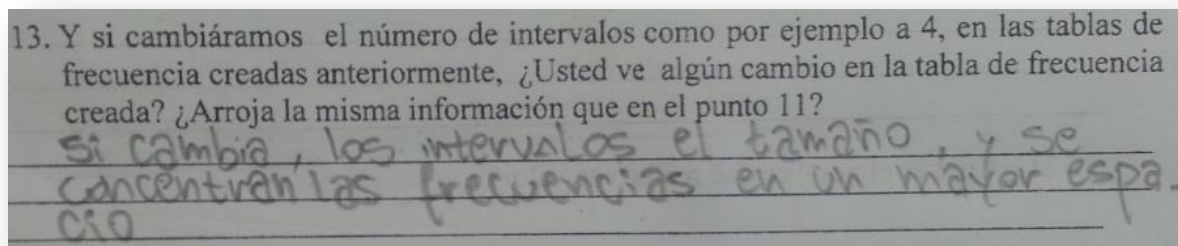 13. Y si cambiáramos el número de intervalos como por ejemplo a 4, en las tablas de
frecuencia creadas anteriormente, ¿Usted ve algún cambio en la tabla de frecuencia
creada? ¿Arroja la misma información que en el punto 11?
si cambia, los intervalos el tamaño, y se
concentran las frecuencias en un mayor espa
cio